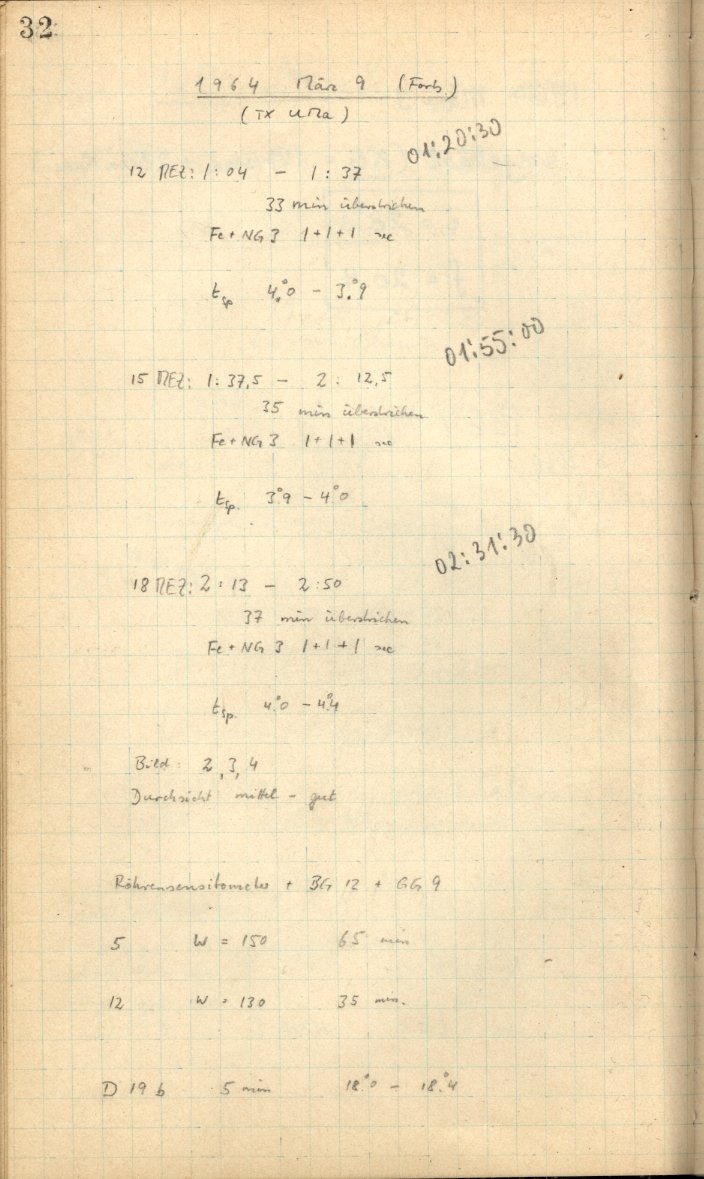 32
1964 März 9 (Forts.)
(TX UMa)
01:20:30
12 MEZ: 1:04 - 1:37
33 min überstrichen
Fe + NG 3 1+1+1 sec
t_sp 4.°0 - 3.°9
01:55:00
15 MEZ: 1:37,5 - 2:12,5
35 min überstrichen
Fe + NG 3 1+1+1 sec
t_sp. 3.°9 - 4.°0
02:31:30
18 MEZ: 2:13 - 2:50
37 min überstrichen
Fe + NG 3 1+1+1 sec
t_sp. 4.°0 - 4.°4
Bild: 2, 3, 4
Durchsicht mittel - gut
Röhrensensitometer + BG 12 + GG 9
5 W = 150 65 min
12 W = 130 35 min.
D 19 b 5 min 18.°0 - 18.°4